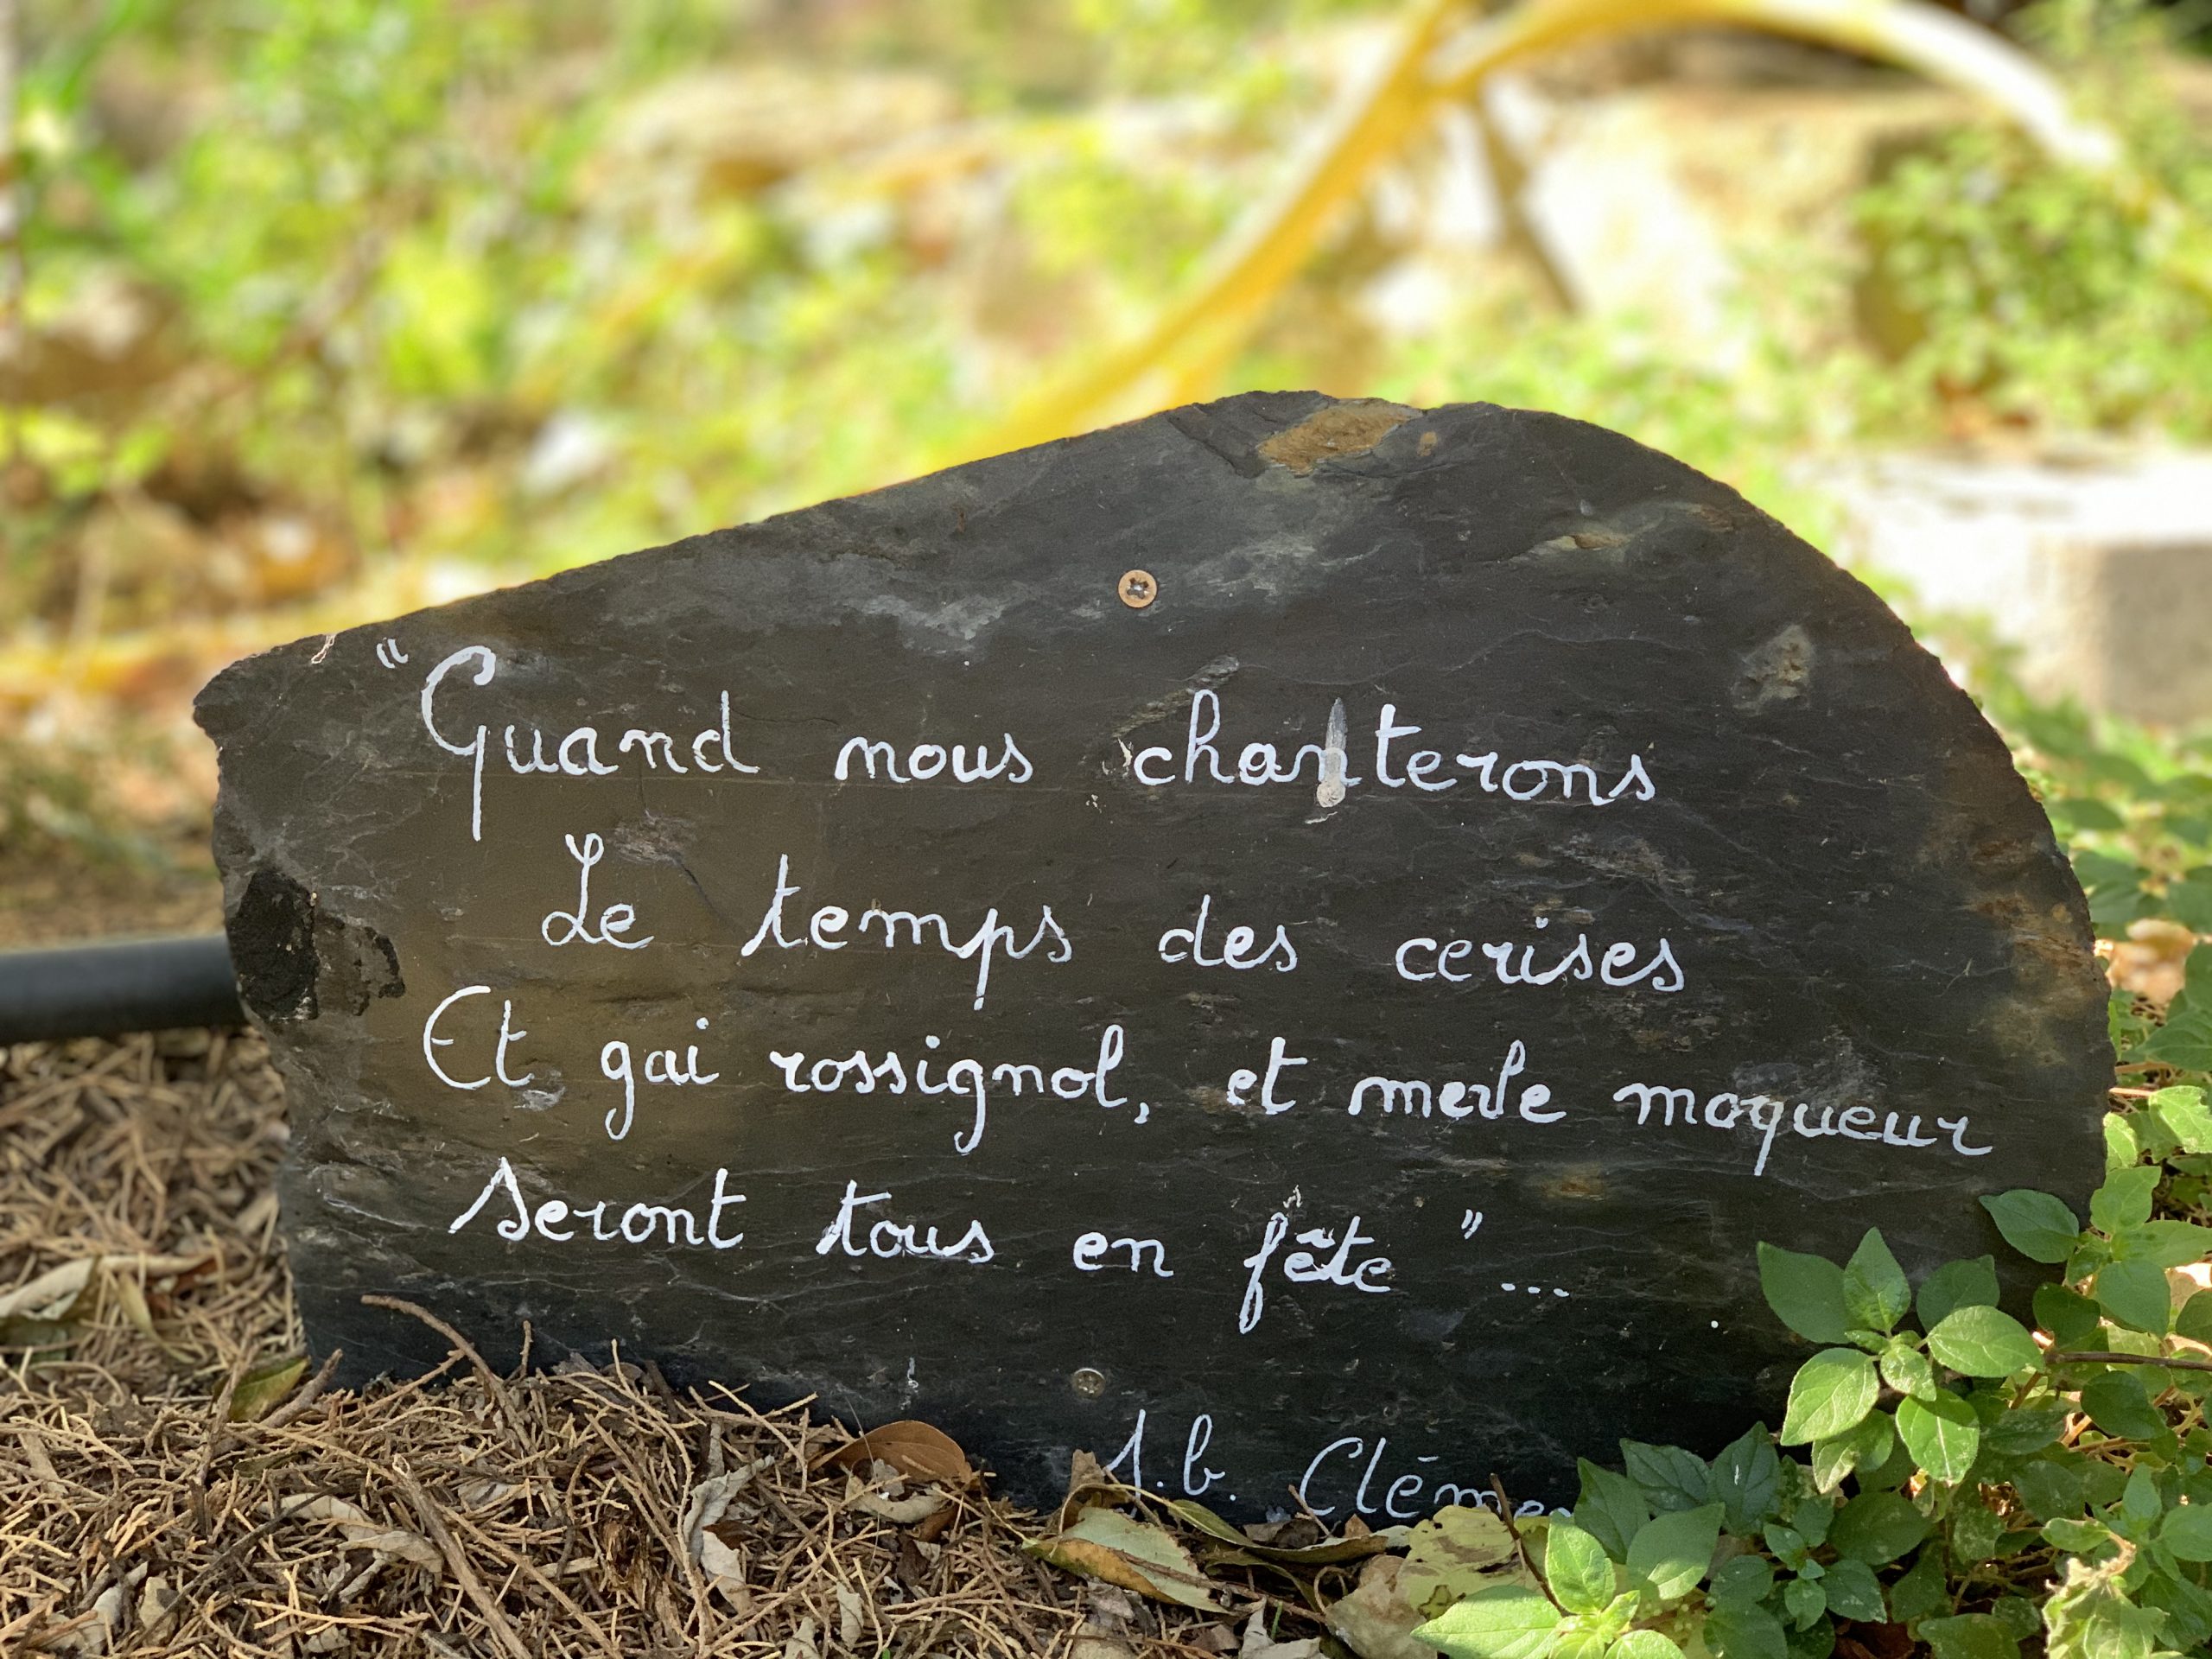 "Quand nous chanterons
Le temps des cerises
Et gai rossignol, et merle moqueur
Seront tous en fête"...
J.b. Cléme